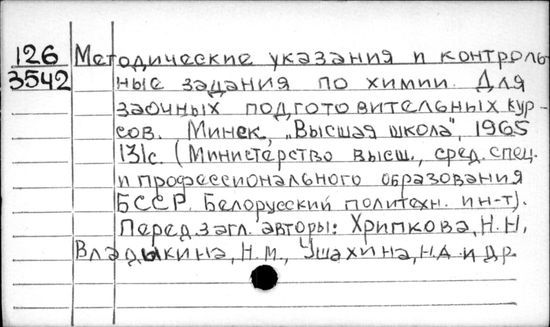 126 Методические указания и контроль-
3542 ные задания по химии. Для
заочных подготовительных кур-
сов. Минск, „Высшая школа", 1965
131с. (Министерство высш., сред. спец.
и профессионального образования
БССР. Белорусский политехн. ин-т).
Перед загл. авторы: Хрипкова, Н.Н.,
Владыкина, Н.М., Ушахина, Н.А. и др.